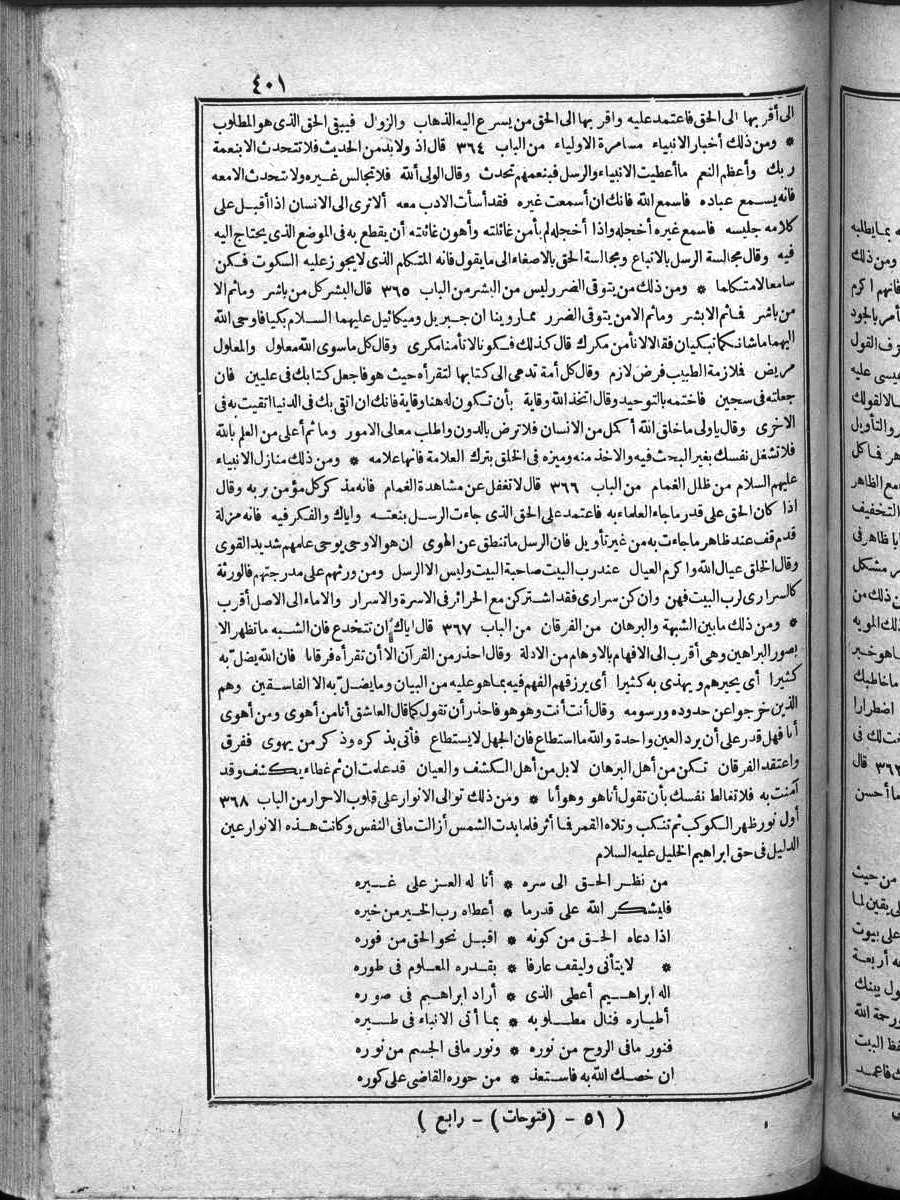 ٤٠١
الى أقر بها الى الحق فاعتمد عليه واقر بها الى الحق من يسرع اليه الذهاب والزوال فيبقى الحق الذى هو المطلوب
* ومن ذلك أخبار الانبياء مسامرة الاولياء من الباب ٣٦٤ قال اذ ولا بد من الحديث فلا تتحدث الا بنعمة
ربك وأعظم النعم ما أعطيت الانبياء والرسل فبنعمهم تحدث وقال الولى أنه فلا تجالس غيره ولا تتحدث الا معه
فانه يسمع عباده فاسمع الله فانك ان أسمعت غيره فقد أسأت الادب معه ألا ترى الى الانسان اذا أقبل على
كلامه جليسه فاسمع غيره أخجله واذا أخجله لم يأمن غائلته وأهون غائلته أن يقطع به فى الموضع الذى يحتاج اليه
فيه وقال مجالسة الرسل بالاتباع ومجالسة الحق بالاصغاء الى ما يقول فانه المتكلم الذى لا يجوز عليه السكوت فكن
سامعا لا متكلما * ومن ذلك من يتوقى الضرر ليس من البشر من الباب ٣٦٥ قال البشر كل من باشر وما ثم الا
من باشر فاثم الا بشر وما ثم الا من يتوقى الضرر مما روينا ان جبريل وميكائيل عليهما السلام بكيا فاوحى الله
اليهما ما شانكما تبكيان فقالا لا نأمن مكرك قال كذلك فكونا لا تأمنا مكرى وقال كل ما سوى الله معلول والمعلول
مريض فلازمة الطبيب فرض لازم وقال كل أمة تدعى الى كتابها لتقرأه حيث هو فاجعل كتابك فى عليين فان
جعلته فى سجين فاختمه بالتوحيد وقال اتخذ الله وقاية بأن تكون له هنا وقاية فانك ان اتقى بك فى الدنيا اتقيت به فى
الاخرى وقال يا ولى ما خلق الله أكمل من الانسان فلا ترض بالدون واطلب معالى الامور وما ثم أعلى من العلم بالله
فلا تشغل نفسك بغير البحث فيه والاخذ منه وميزه فى الخلق بترك العلامة فانها علامه * ومن ذلك منازل الانبياء
عليهم السلام من ظلل الغمام من الباب ٣٦٦ قال لا تغفل عن مشاهدة الغمام فانه مذكر كل مؤمن بربه وقال
اذا كان الحق على قدر ما جاء العلماء به فاعتمد على الحق الذى جاءت الرسل بنعته واياك والفكر فيه فانه مزلة
قدم قف عند ظاهر ما جاءت به من غير تأويل فان الرسل ما تنطق عن الهوى ان هو الا وحى يوحى علمهم شديد القوى
وقال الخلق عيال الله وا كرم العيال عند رب البيت صاحبة البيت وليس الا الرسل ومن ورثهم على مدرجتهم فالورثة
كالسرارى لرب البيت فهن وان كن سرارى فقد اشتركن مع الحرائر فى الاسرة والاسرار والاماء الى الاصل أقرب
* ومن ذلك ما بين الشبهة والبرهان من الفرقان من الباب ٣٦٧ قال اياك ان تتخدع فان الشبه ما تظهر الا
بصور البراهين وهى أقرب الى الافهام بالاوهام من الادلة وقال احذر من القرآن الا أن تقرأه فرقانا فان الله يضل به
كثيرا أى يحيرهم ويهدى به كثيرا أى يرزقهم الفهم فيه بما هو عليه من البيان وما يضل به الا الفاسقين وهم
الذين خرجوا عن حدوده ورسومه وقال أنت أنت وهو هو فاحذر أن تقول كما قال العاشق أنا من أهوى ومن أهوى
أنا فهل قدر على أن يرد العين واحدة والله ما استطاع فان الجهل لا يستطاع فأتى بذكره وذكر من يهوى ففرق
واعتقد الفرقان تكن من أهل البرهان لا بل من أهل الكشف والعيان قد علمت ان ثم غطاء يكشف وقد
آمنت به فلا تغالط نفسك بأن تقول أنا هو وهو أنا * ومن ذلك توالى الانوار على قلوب الاحرار من الباب ٣٦٨
أول نور ظهر الكوكب ثم تنكب وتلاه القمر فا أثر فلما بدت الشمس أزالت ما فى النفس وكانت هذه الانوار عين
الدليل فى حق ابراهيم الخليل عليه السلام
من نظر الحق الى سره * أنا له العز على غيره
فليشكر الله على قدر ما * أعطاه رب الخير من خيره
اذا دعاه الحق من كونه * اقبل نحو الحق من فوره
* لا يتأنى وليقف عارفا * بقدره المعلوم فى طوره
اله ابراهيم أعطى الذى * أراد ابراهيم فى صوره
أطياره فنال مطلوبه * بما أتى الانباء فى طيره
فنور ما فى الروح من نوره * ونور ما فى الجسم من نوره
ان خصك الله به فاستعذ * من حوره القاضى على كوره
( ٥١ - (فتوحات) - رابع )